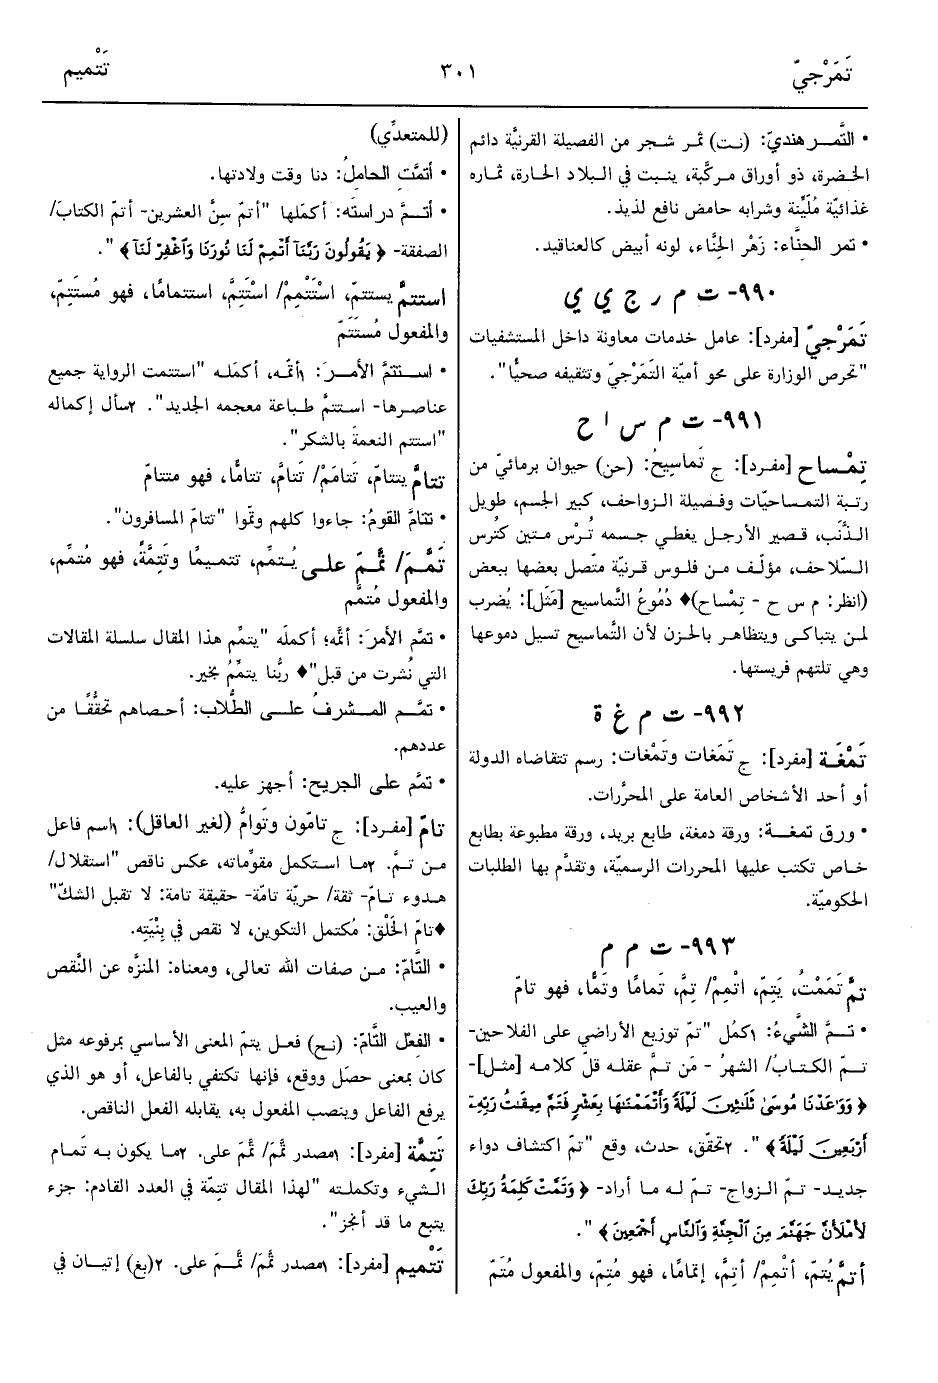 تَمَرْجيّ
٣٠١
تَتْميم
• التَّمـر هنديّ: (نت) ثمر شجر من الفصيلة القرنيَّة دائم
الخضرة، ذو أوراق مركَّبة، ينبت في البلاد الحارة، ثماره
غذائيّة مُلَيِّنة وشرابه حامض نافع لذيذ.
• تمر الحِنَّاء: زَهْر الحِنَّاء، لونه أبيض كالعناقيد.
٩٩٠- ت م ر ج ي ي
تَمَرْجيّ [مفرد]: عامل خدمات معاونة داخل المستشفيات
"تحرص الوزارة على محو أميّة التَّمَرْجيّ وتثقيفه صحيًّا".
٩٩١- ت م س ا ح
تِمْساح [مفرد]: ج تَماسيحُ: (حن) حيوان برمائيّ من
رتبة التمساحيّات وفصيلة الزواحف، كبير الجسم، طويل
الذَّنَب، قصير الأرجل يغطي جسمه تُرْس متين كتُرس
السّلاحف، مؤلَّف من فلوس قرنيّة متّصل بعضها ببعض
(انظر: م س ح - تِمْساح)♦ دُموعُ التَّماسيح [مَثَل]: يُضرب
لمن يتباكى ويتظاهر بالحزن لأن التَّماسيح تسيل دموعها
وهي تلتهم فريستها.
٩٩٢- ت م غ ة
تَمْغَة [مفرد]: ج تَمَغات وتَمْغات: رسم تتقاضاه الدولة
أو أحد الأشخاص العامة على المحرَّرات.
• ورق تمغـة: ورقة دمغة، طابع بريد، ورقة مطبوعة بطابع
خاص تكتب عليها المحررات الرسميّة، وتقدَّم بها الطلبات
الحكوميّة.
٩٩٣- ت م م
تمَّ تَمَمْتُ، يَتِمّ، اتْمِمْ/ تِمَّ، تَمامًا وتَمًّا، فهو تامّ
• تـمَّ الشَّيءُ: ١كمُل "تمّ توزيع الأراضي على الفلاحين-
تـمّ الكتـابُ/ الشهرُ - مَن تـمَّ عقلـه قلّ كلامـه [مثل]-
﴿ وَوَٰعَدْنَا مُوسَىٰ ثَلَٰثِينَ لَيْلَةً وَأَتْمَمْنَٰهَا بِعَشْرٍ فَتَمَّ مِيقَٰتُ رَبِّهِۦٓ
أَرْبَعِينَ لَيْلَةً ﴾ ". ٢تحقّق، حدث، وقع "تمّ اكتشاف دواء
جديـد- تـمّ الـزواج- تـمّ لـه مـا أراد- ﴿ وَتَمَّتْ كَلِمَةُ رَبِّكَ
لَأَمْلَأَنَّ جَهَنَّمَ مِنَ الْجِنَّةِ وَالنَّاسِ أَجْمَعِينَ ﴾ ".
أتمَّ يُتمّ، أتْمِمْ/ أتِمَّ، إتمامًا، فهو مُتِمّ، والمفعول مُتَمّ
(للمتعدِّي)
• أتمَّتِ الحاملُ: دنا وقت ولادتها.
• أتـمَّ دراستَه: أكمَلها "أتمّ سِنَّ العشرين- أتمّ الكتابَ/
الصفقة- ﴿ يَقُولُونَ رَبَّنَآ أَتْمِمْ لَنَا نُورَنَا وَاغْفِرْ لَنَا ﴾ ".
استتمَّ يستتمّ، اسْتَتْمِمْ/ اسْتَتِمَّ، استتمامًا، فهو مُستَتِمّ،
والمفعول مُستَتَمّ
• استتمَّ الأمرَ: ١أتمّه، أكمَله "استتمت الرواية جميع
عناصرها- استتمَّ طباعة معجمه الجديد". ٢سأل إكماله
"استتم النعمةَ بالشكر".
تتامَّ يتتامّ، تَتامَمْ/ تَتامَّ، تتامًّا، فهو متتامّ
• تتامَّ القومُ: جاءوا كلهم وتمّوا "تتامّ المسافرون".
تَمَّمَ/ تَمَّمَ على يُتمِّم، تتميمًا وتَتِمَّةً، فهو مُتمِّم،
والمفعول مُتمَّم
• تمَّم الأمرَ: أتمَّه؛ أكملَه "يتمِّم هذا المقال سلسلة المقالات
التي نُشرت من قبل"♦ ربُّنا يتمِّمُ بخير.
• تمَّـم المـشرفُ علـى الطُّلاب: أحصاهم تحقُّقًا من
عددهم.
• تمَّم على الجريح: أجهز عليه.
تامّ [مفرد]: ج تامّون وتَوامُّ (لغير العاقل): ١اسم فاعل
من تمَّ. ٢ما استكمل مقوِّماته، عكس ناقص "استقلال/
هدوء تـامّ- ثقة/ حريّة تامّة- حقيقة تامة: لا تقبل الشكّ"
♦تامّ الخَلْق: مُكتمل التكوين، لا نقص في بِنْيَتِه.
• التَّامّ: من صفات الله تعالى، ومعناه: المنزَّه عن النَّقص
والعيب.
• الفِعْل التَّامّ: (نح) فعـل يتمّ المعنى الأساسي بمرفوعه مثل
كان بمعنى حصَل ووقع، فإنها تكتفي بالفاعل، أو هو الذي
يرفع الفاعل وينصب المفعول به، يقابله الفعل الناقص.
تَتِمَّة [مفرد]: ١مصدر تمَّمَ/ تمَّمَ على. ٢ما يكون به تَمام
الشيء وتكملته "لهذا المقال تتِمّة في العدد القادم: جزء
يتبع ما قد أنجز".
تَتْميم [مفرد]: ١مصدر تمَّمَ/ تمَّمَ على. ٢(بغ) إتيان في